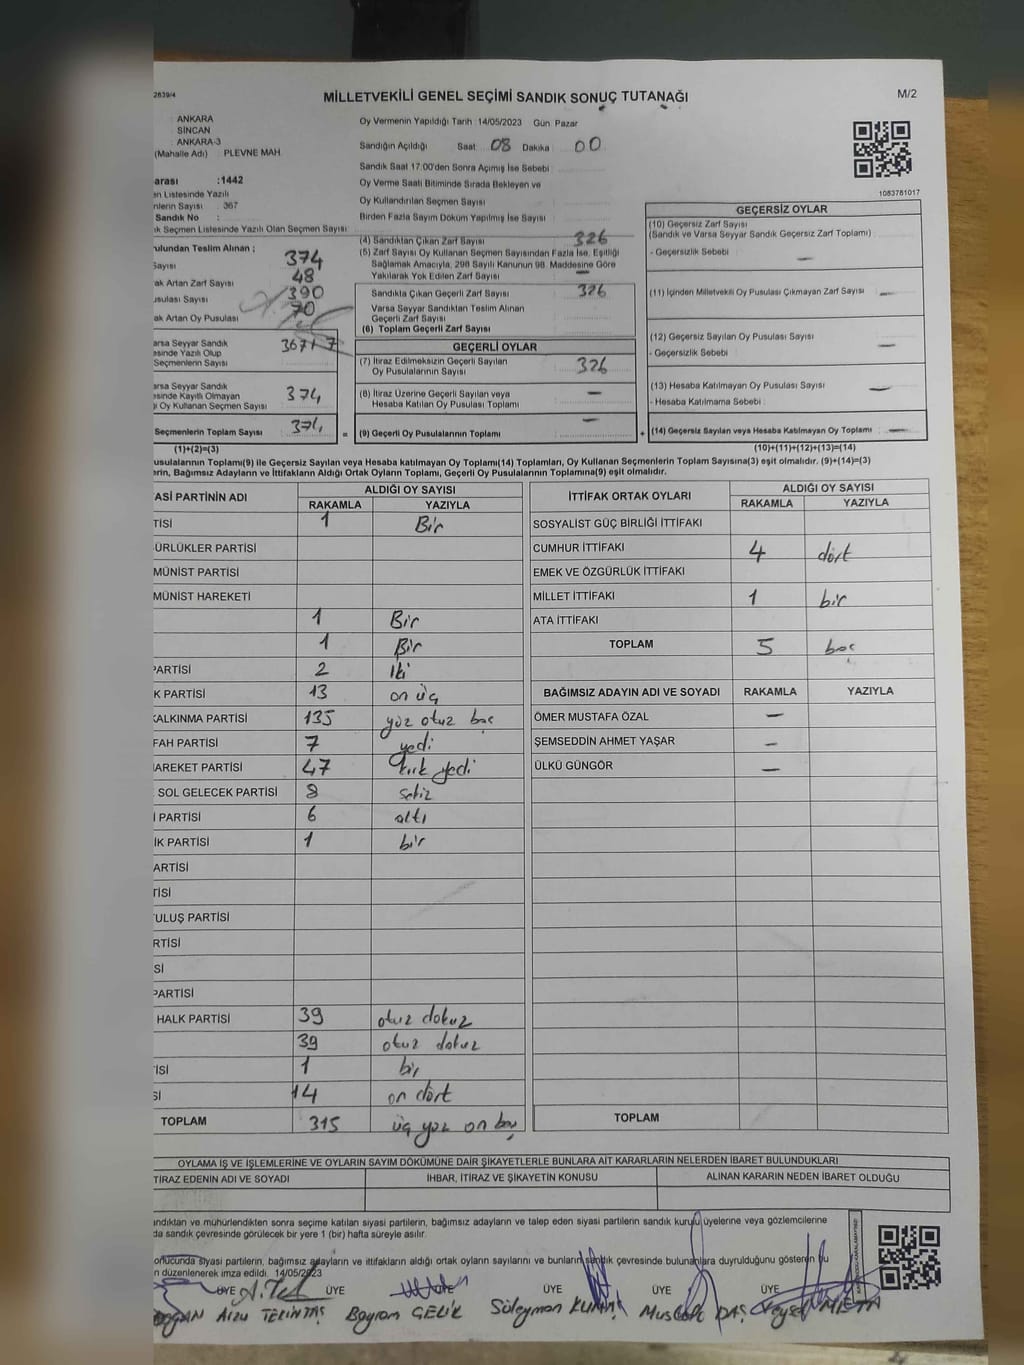 2839/4
MİLLETVEKİLİ GENEL SEÇİMİ SANDIK SONUÇ TUTANAĞI
M/2
ANKARA
SİNCAN
ANKARA-3
(Mahalle Adı) PLEVNE MAH.
arası :1442
en Listesinde Yazılı
nlerin Sayısı : 367
Sandık No :
ık Seçmen Listesinde Yazılı Olan Seçmen Sayısı
Oy Vermenin Yapıldığı Tarih :14/05/2023 Gün Pazar
Sandığın Açıldığı Saat 08 Dakika 00
Sandık Saat 17:00'den Sonra Açılmış İse Sebebi
Oy Verme Saati Bitiminde Sırada Bekleyen ve
Oy Kullandırılan Seçmen Sayısı
Birden Fazla Sayım Döküm Yapılmış İse Sayısı
1083781017
rulundan Teslim Alınan ;
Sayısı 374
ak Artan Zarf Sayısı 48
usulası Sayısı 390
ak Artan Oy Pusulası 70
arsa Seyyar Sandık
esinde Yazılı Olup
Seçmenlerin Sayısı 367
arsa Seyyar Sandık
esinde Kayıtlı Olmayan
i Oy Kullanan Seçmen Sayısı 374
Seçmenlerin Toplam Sayısı 374
(1)+(2)=(3)
(4) Sandıktan Çıkan Zarf Sayısı 326
(5) Zarf Sayısı Oy Kullanan Seçmen Sayısından Fazla İse, Eşitliği
Sağlamak Amacıyla, 298 Sayılı Kanunun 98. Maddesine Göre
Yakılarak Yok Edilen Zarf Sayısı —
Sandıkta Çıkan Geçerli Zarf Sayısı 326
Varsa Seyyar Sandıktan Teslim Alınan
Geçerli Zarf Sayısı
(6) Toplam Geçerli Zarf Sayısı
GEÇERLİ OYLAR
(7) İtiraz Edilmeksizin Geçerli Sayılan
Oy Pusulalarının Sayısı 326
(8) İtiraz Üzerine Geçerli Sayılan veya
Hesaba Katılan Oy Pusulası Toplamı —
= (9) Geçerli Oy Pusulalarının Toplamı — +
GEÇERSİZ OYLAR
(10) Geçersiz Zarf Sayısı
(Sandık ve Varsa Seyyar Sandık Geçersiz Zarf Toplamı)
- Geçersizlik Sebebi —
(11) İçinden Milletvekili Oy Pusulası Çıkmayan Zarf Sayısı —
(12) Geçersiz Sayılan Oy Pusulası Sayısı —
- Geçersizlik Sebebi
(13) Hesaba Katılmayan Oy Pusulası Sayısı —
- Hesaba Katılmama Sebebi
(14) Geçersiz Sayılan veya Hesaba Katılmayan Oy Toplamı —
(10)+(11)+(12)+(13)=(14)
usulalarının Toplamı(9) ile Geçersiz Sayılan veya Hesaba katılmayan Oy Toplamı(14) Toplamları, Oy Kullanan Seçmenlerin Toplam Sayısına(3) eşit olmalıdır. (9)+(14)=(3)
rin, Bağımsız Adayların ve İttifakların Aldığı Ortak Oyların Toplamı, Geçerli Oy Pusulalarının Toplamına(9) eşit olmalıdır.
ASİ PARTİNİN ADI ALDIĞI OY SAYISI
RAKAMLA YAZIYLA
TİSİ 1 Bir
ÜRLÜKLER PARTİSİ
MÜNİST PARTİSİ
MÜNİST HAREKETİ
1 Bir
1 Bir
PARTİSİ 2 iki
K PARTİSİ 13 on üç
KALKINMA PARTİSİ 135 yüz otuz beş
FAH PARTİSİ 7 yedi
AREKET PARTİSİ 47 kırk yedi
SOL GELECEK PARTİSİ 8 sekiz
İ PARTİSİ 6 altı
İK PARTİSİ 1 bir
ARTİSİ
TİSİ
TULUŞ PARTİSİ
RTİSİ
Sİ
PARTİSİ
HALK PARTİSİ 39 otuz dokuz
39 otuz dokuz
İSİ 1 bir
Sİ 14 on dört
TOPLAM 315 üç yüz on beş
İTTİFAK ORTAK OYLARI ALDIĞI OY SAYISI
RAKAMLA YAZIYLA
SOSYALİST GÜÇ BİRLİĞİ İTTİFAKI
CUMHUR İTTİFAKI 4 dört
EMEK VE ÖZGÜRLÜK İTTİFAKI
MİLLET İTTİFAKI 1 bir
ATA İTTİFAKI
TOPLAM 5 beş
BAĞIMSIZ ADAYIN ADI VE SOYADI RAKAMLA YAZIYLA
ÖMER MUSTAFA ÖZAL —
ŞEMSEDDİN AHMET YAŞAR —
ÜLKÜ GÜNGÖR —
TOPLAM
OYLAMA İŞ VE İŞLEMLERİNE VE OYLARIN SAYIM DÖKÜMÜNE DAİR ŞİKAYETLERLE BUNLARA AİT KARARLARIN NELERDEN İBARET BULUNDUKLARI
TİRAZ EDENİN ADI VE SOYADI İHBAR, İTİRAZ VE ŞİKAYETİN KONUSU ALINAN KARARIN NEDEN İBARET OLDUĞU
ndıktan ve mühürlendikten sonra seçime katılan siyasi partilerin, bağımsız adayların ve talep eden siyasi partilerin sandık kurulu üyelerine veya gözlemcilerine
da sandık çevresinde görülecek bir yere 1 (bir) hafta süreyle asılır.
onucunda siyasi partilerin, bağımsız adayların ve ittifakların aldığı ortak oyların sayılarını ve bunların sandık çevresinde bulunanlara duyrulduğunu gösteren bu
n düzenlenerek imza edildi. 14/05/2023
ÜYE ÜYE ÜYE ÜYE ÜYE
Arzu TEKİNTAŞ Bayram ÇELİK Süleyman Mustafa DAŞ Veysel